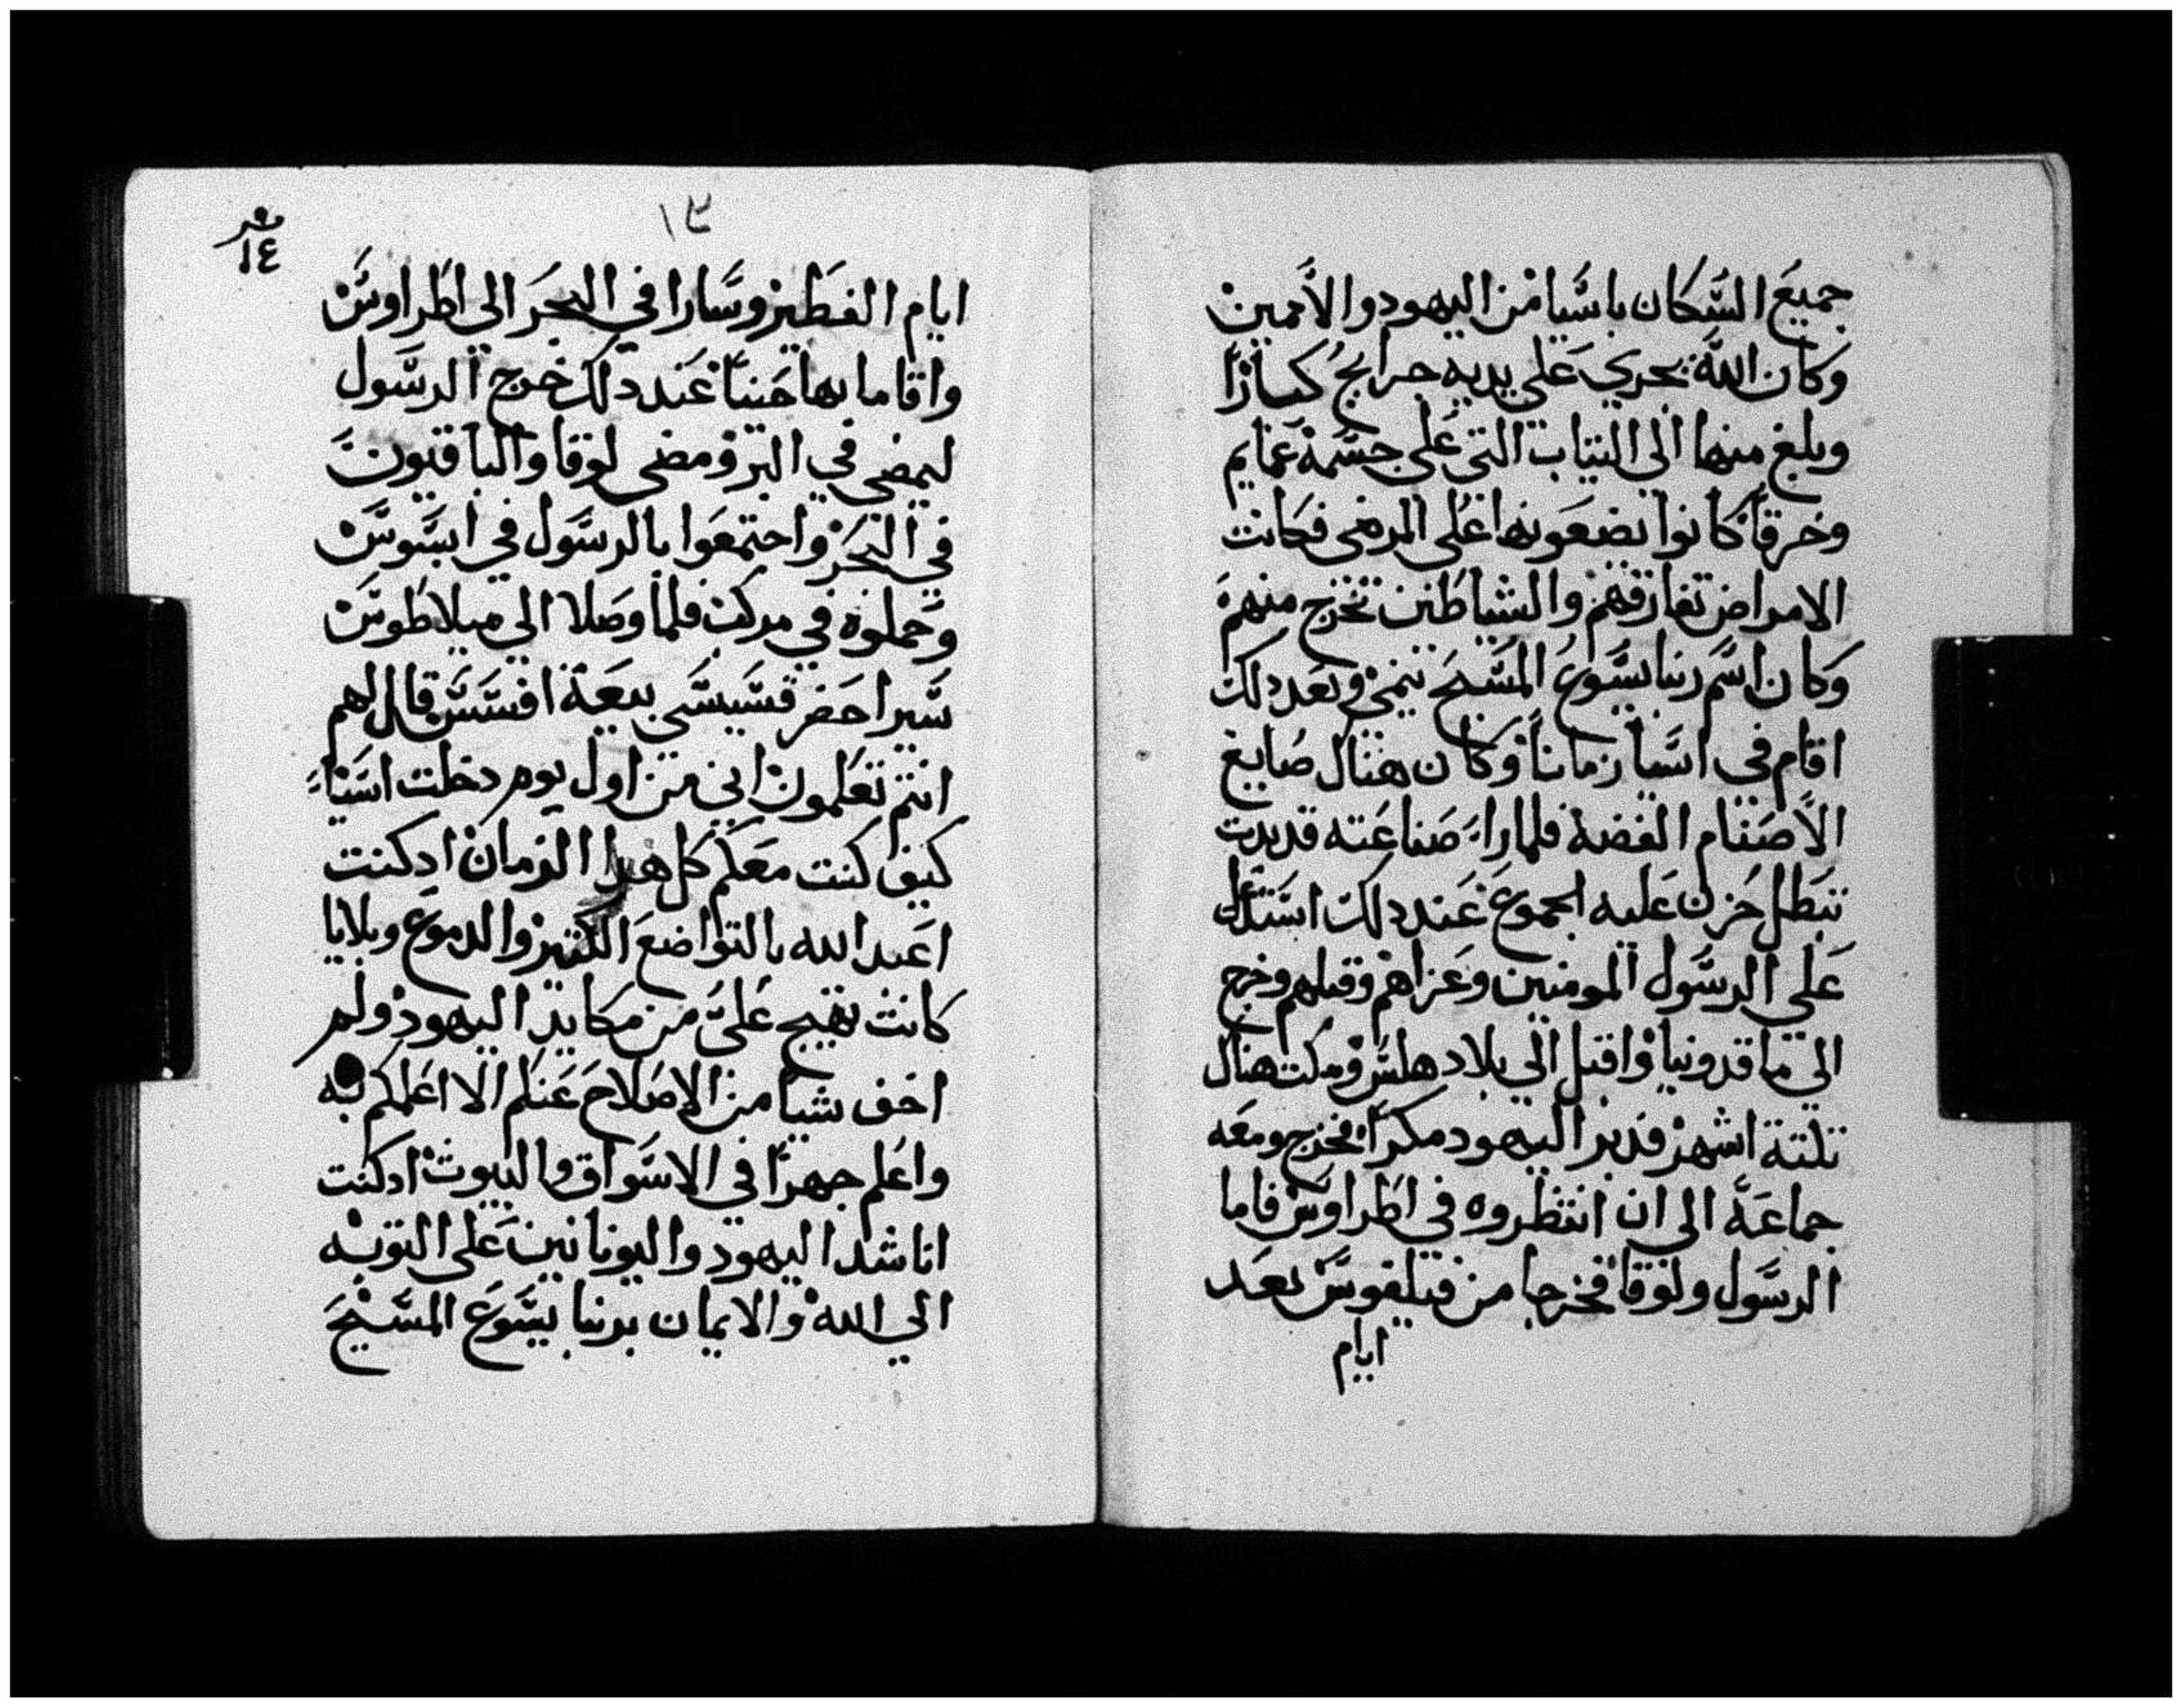 جميع السكان باسيا من اليهود والأممين
وكان الله يجري على يديه جرايح كبارًا
وبلغ منها الى التياب التي على جسمه عمايم
وخرقًا كانوا يضعونها على المرضى فكانت
الامراض تفارقهم والشياطين تخرج منهم
وكان اسم ربنا يسوع المسيح ينمي وبعد دلك
اقام في اسيا زمانًا وكان هناك صايغ
الأصنام الفضة فلما راء صناعته قد بدت
تبطل حزن عليه الجموع عند دلك استدعا
على الرسول المومنين وعزاهم وقبلهم وخرج
الى ماقدونيا واقبل الي بلاد هلس ومكت هناك
تلتة اشهر فدبر اليهود مكرًا فخرج ومعه
جماعة الى ان انتظروه في اطراوس فاما
الرسول ولوقا فخرجا من فيلفوس بعد
ايام
١٣
١٤
ايام الفطير وسارا في البحر الي اطراوس
واقاما بها حينًا عند دلك خرج الرسول
ليمضي في البر ومضى لوقا والباقيون
في البحر واجتمعوا بالرسول في اسوس
وحملوه في مركب فلما وصلا الي ميلاطوس
سيرا حضر قسيسي بيعة افسس قال لهم
انتم تعلمون اني من اول يوم دخلت اسياء
كيف كنت معكم كل هدا الزمان اد كنت
اعبد الله بالتواضع الكتير والدموع وبلايا
كانت تهيج عليّ من مكايد اليهود ولم
اخف شيا من الاصلاح عنكم الا اعلمكم به
واعلم جهرًا في الاسواق والبيوت اد كنت
اناشد اليهود واليونانين على التوبه
الي الله والايمان بربنا يسوع المسيح